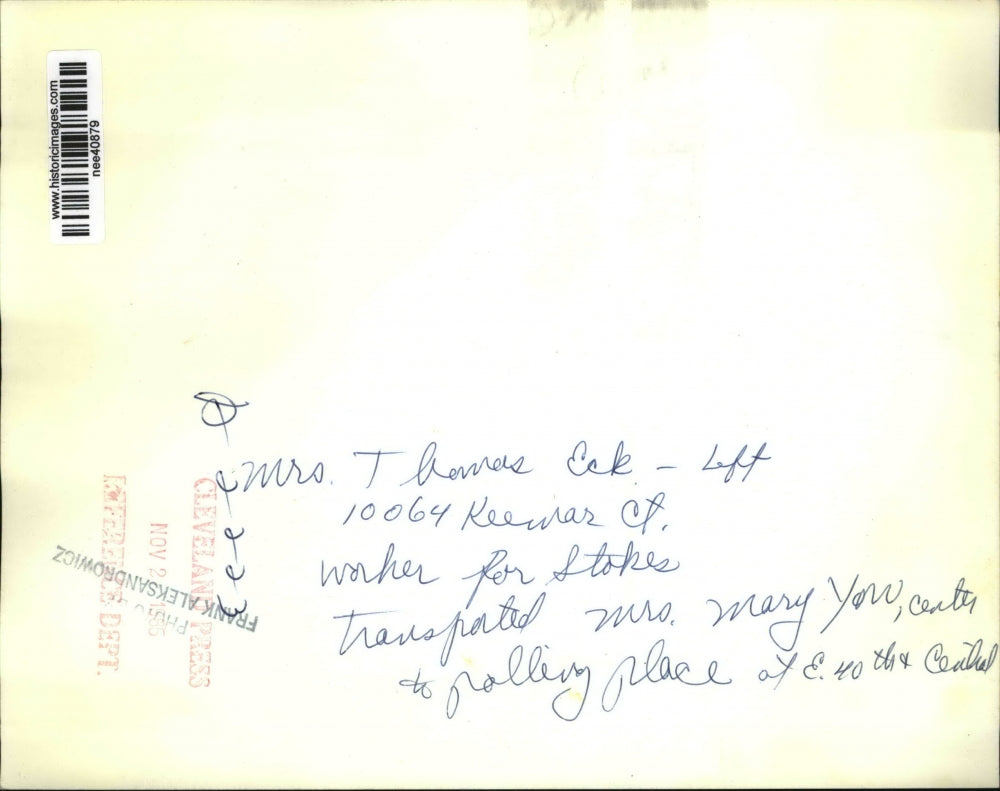 www.historicimages.com
nee40879
Mrs. Thomas Eck - Left
10064 Keewar Ct.
worker for Stokes
transported Mrs. Mary Yow, center
to polling place at E. 40th & Central
CLEVELAND PRESS
NOV 2 1965
REFERENCE DEPT.
FRANK ALEKSANDROWICZ